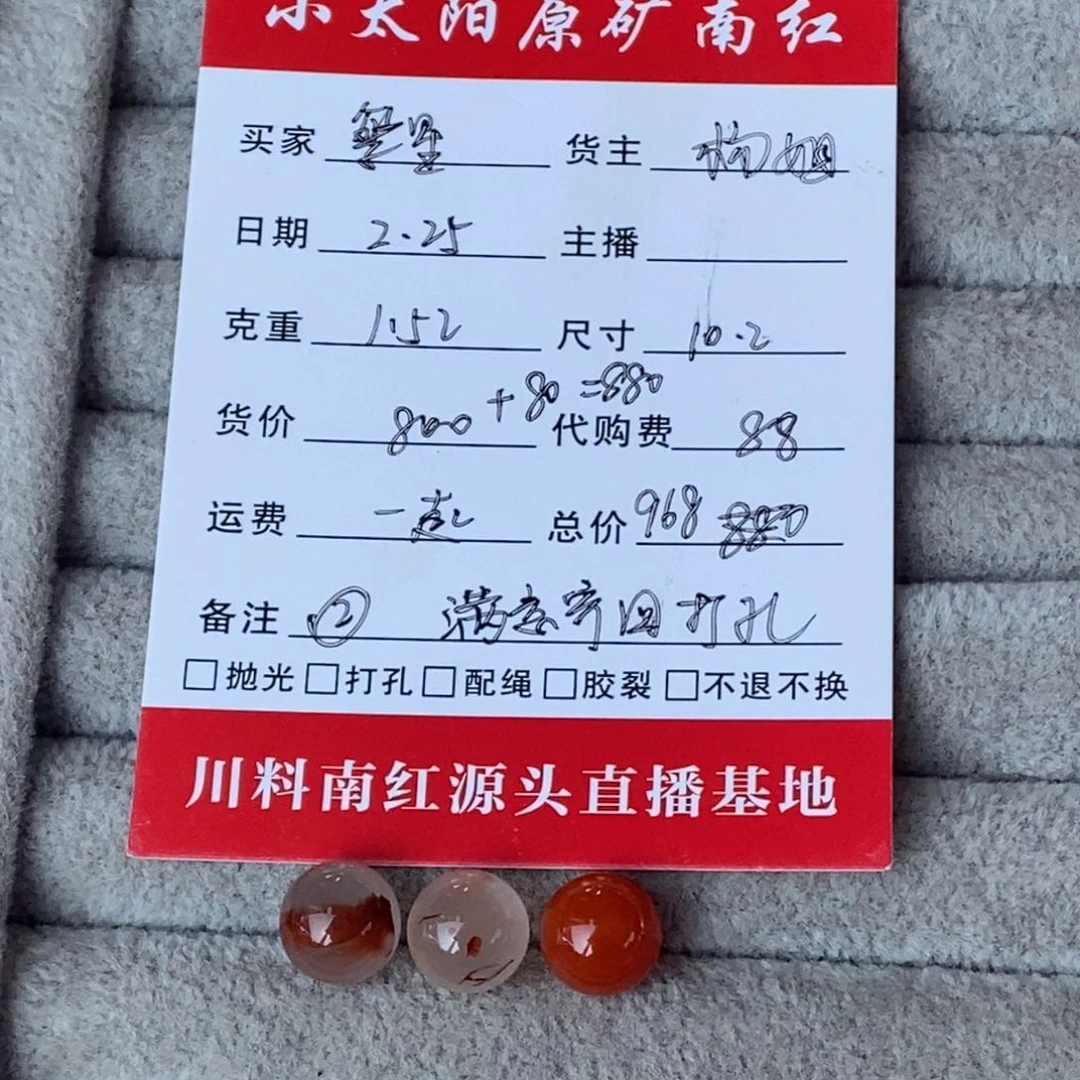 小太阳原矿南红
买家 繁星 货主 杨姐
日期 2.25 主播
克重 1.52 尺寸 10.2
+80=880
货价 800 代购费 88
运费 一起 总价 968 880
备注 ② 满意寄回打孔
□抛光□打孔□配绳□胶裂□不退不换
川料南红源头直播基地